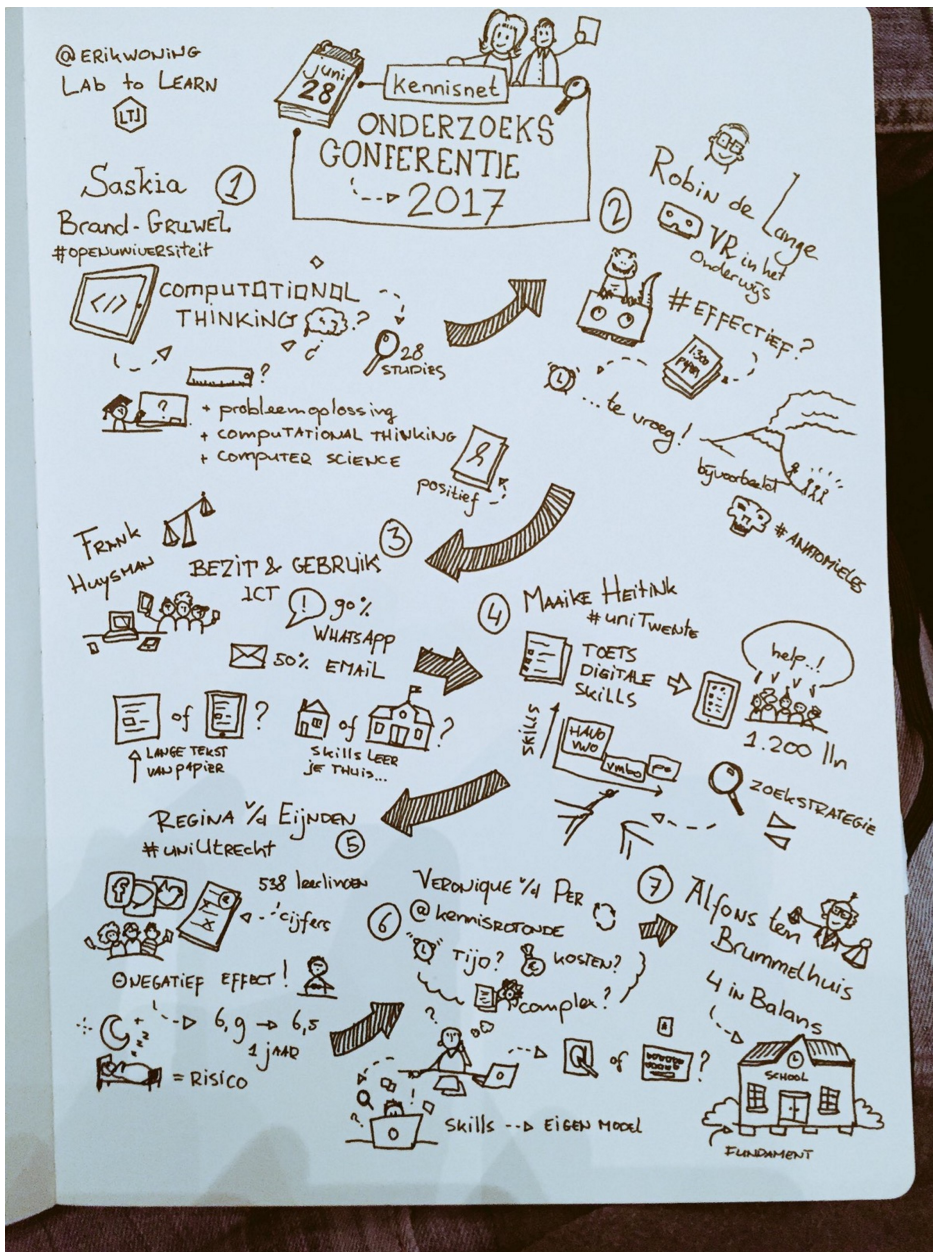 @ERIKWONING
LAB to LEARN
LTL
juni
28
kennisnet
ONDERZOEKS
CONFERENTIE
2017
Saskia
Brand-Gruwel
#openuniversiteit
1
</>
COMPUTATIONAL
THINKING ?
28
STUDIES
?
?
+ probleemoplossing
+ computational thinking
+ computer science
positief
2
Robin de Lange
VR in het
Onderwijs
#EFFECTIEF?
1300
... te vroeg!
bijvoorbeeld
#ANATOMIELES
3
FRANK
HUYSMAN
BEZIT & GEBRUIK
ICT
! 90%
WHATSAPP
50% EMAIL
of ?
LANGE TEKST
VAN PAPIER
of ?
Skills LEER
je THUIS...
4
MAAIKE HEITINK
#uniTwente
TOETS
DIGITALE
SKILLS
help..!
1.200 lln
SKILLS
HAVO
VWO
vmbo
po
ZOEKSTRATEGIE
REGINA v/d EIJNDEN
#uniUtrecht
5
538 leerlingen
cijfers
NEGATIEF EFFECT!
6,9 → 6,5
1 JAAR
zzz
= RISICO
VERONIQUE v/d PER
6
@kennisrotonde
TIJD? KOSTEN?
complex?
?
of ?
Skills --> EIGEN MODEL
7
Alfons ten
Brummelhuis
4 in Balans
SCHOOL
FUNDAMENT